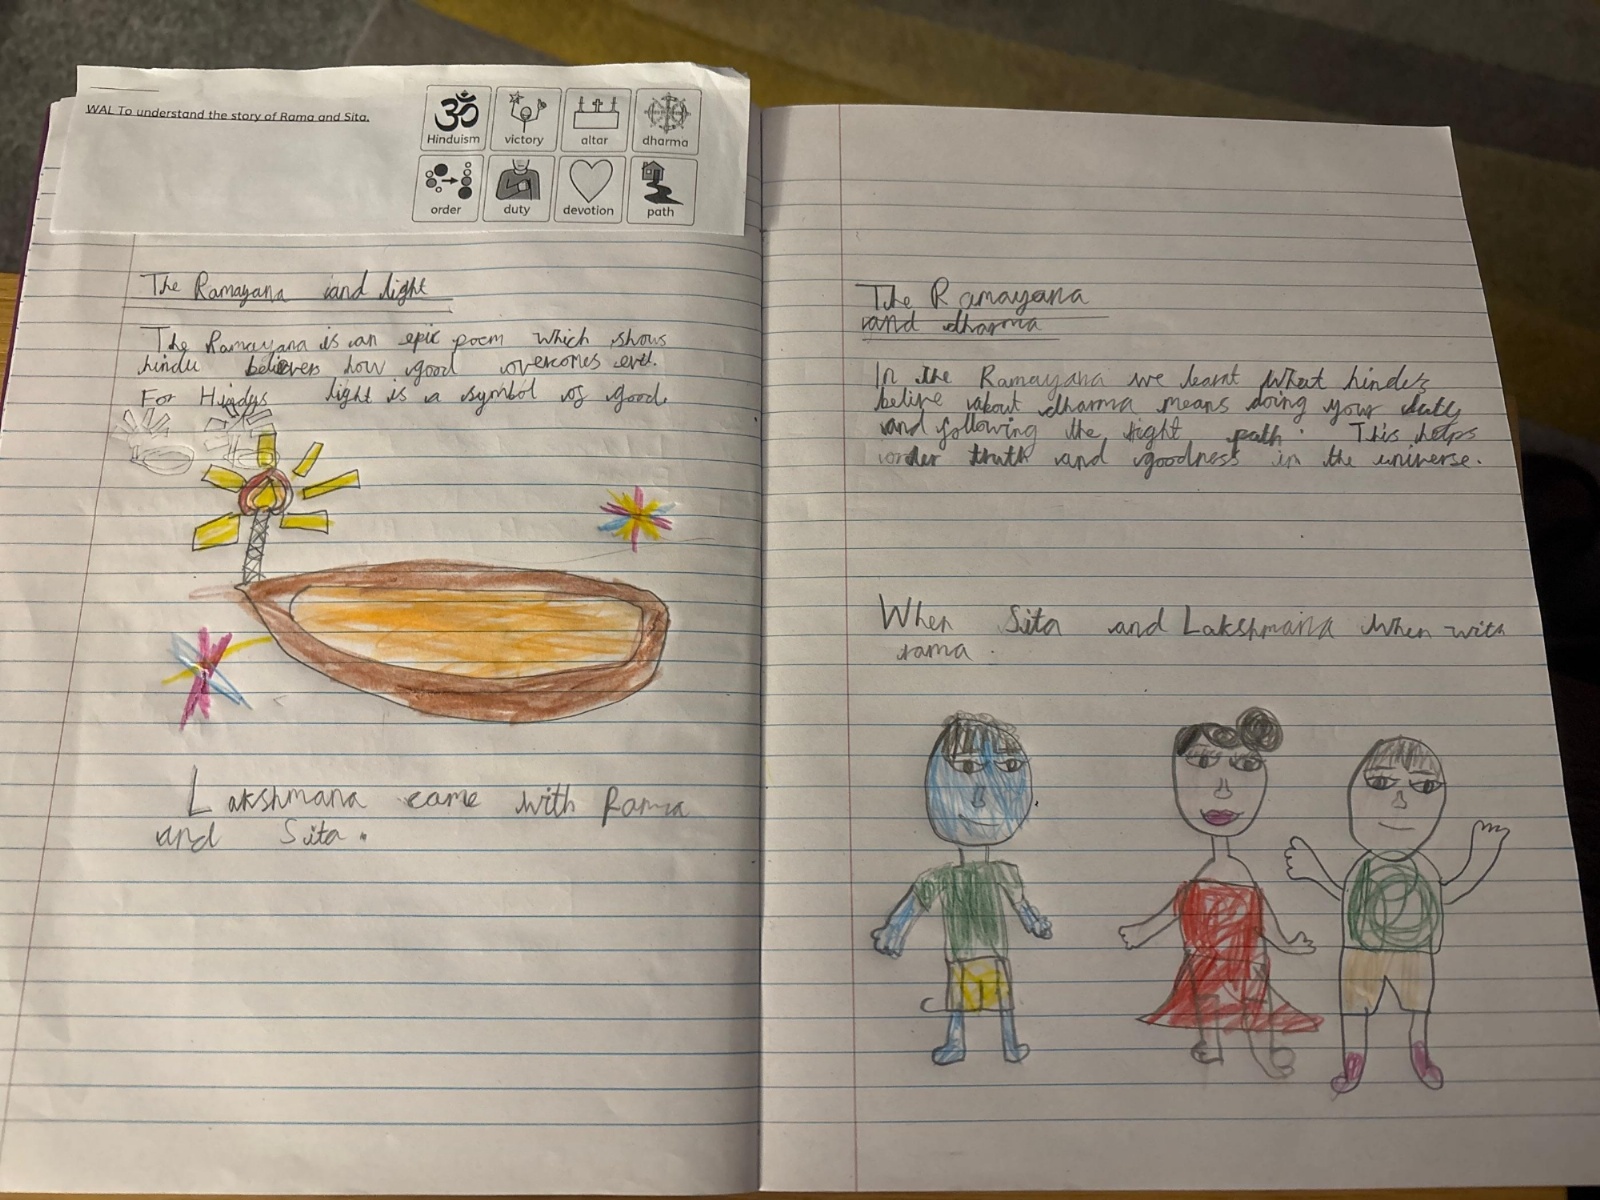 WAL To understand the story of Rama and Sita.
Hinduism victory altar dharma
order duty devotion path
The Ramayana and light
The Ramayana is an epic poem which shows
hindu believers how good overcomes evil.
For Hindus light is a symbol of good.
Lakshmana came with Rama
and Sita.
The Ramayana
and dharma
In the Ramayana we learnt what hindes
belive about dharma means doing your duty
and following the right path. This helps
order truth and goodness in the universe.
When Sita and Lakshmana When with
rama.